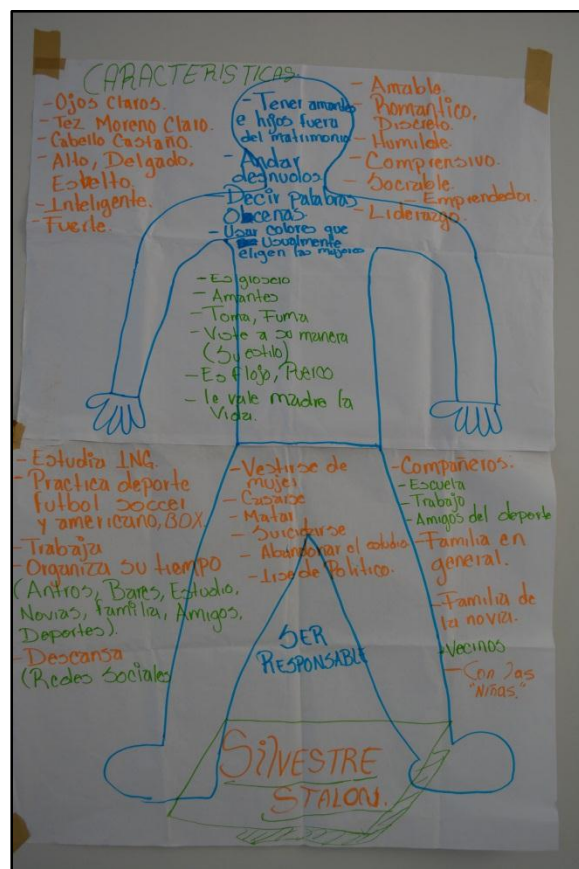 CARACTERISTICAS.
- Ojos Claros.
- Tez Moreno Claro.
- Cabello Castaño.
- Alto, Delgado,
Esbelto,
- Inteligente.
- Fuerte.
- Tener amantes
e hijos fuera
del matrimonio
- Andar
desnudos
- Decir palabras
Obcenas
- Usar colores que
Usualmente
eligen las mujeres
- Amable.
- Romantico,
Discreto.
- Humilde.
- Comprensivo.
- Socriable.
- Emprendedor.
- Liderazgo.
- Es grosero
- Amantes
- Toma, Fuma
- Viste a su manera
(Su estilo)
- Es flojo, Puerco
- le vale madre la
Vida.
- Estudia ING.
- Practica deporte
futbol soccer
y americano, BOX.
- Trabaja
- Organiza su tiempo
(Antros, Bares, Estudio,
Novias, familia, Amigos,
Deportes).
- Descansa
(Redes Sociales
- Vestirse de
mujer
- Casarse
- Matar
- Suicidarse
- Abandonar el estudio
- Irse de Politico.
- Compañeros.
- Escuela
- Trabajo
- Amigos del deporte
- Familia en
general.
- Familia de
la novia.
- Vecinos
- Con las
"Niñas."
SER
RESPONSABLE
SILVESTRE
STALON.